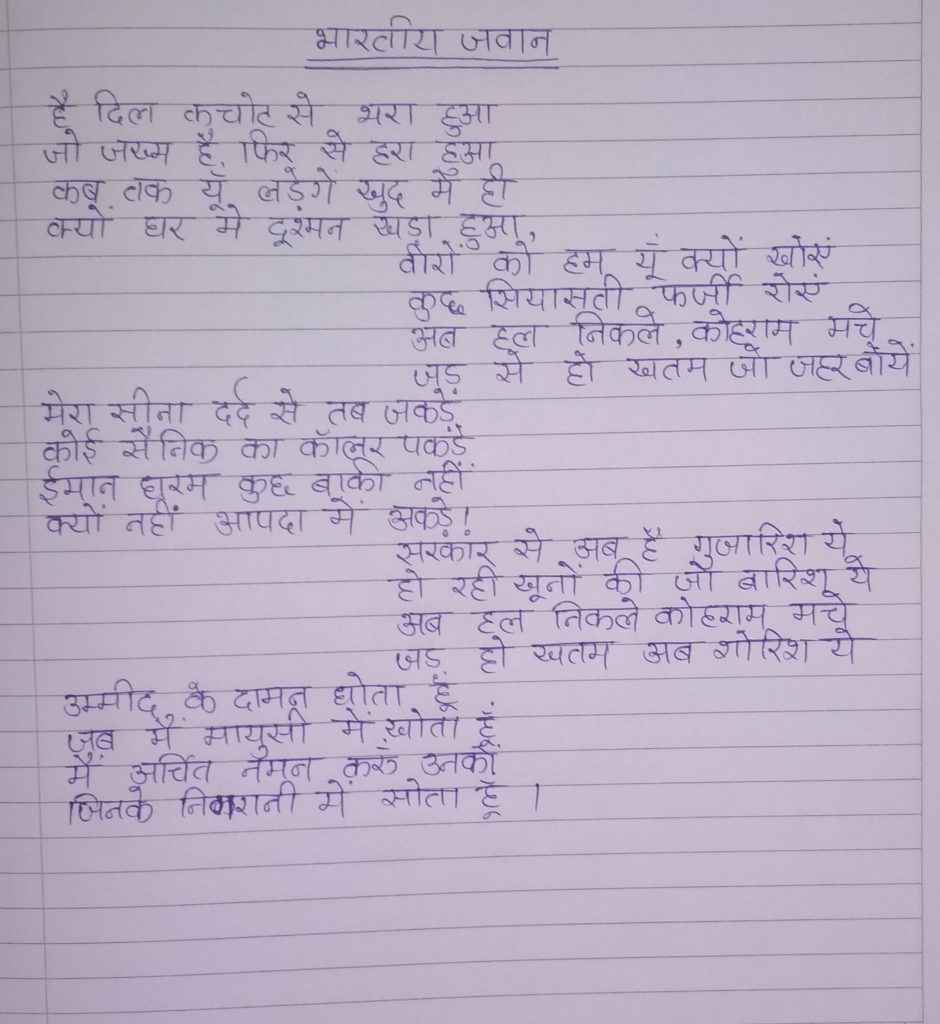 भारतीय जवान
है दिल कचोट से भरा हुआ
जो जख्म है, फिर से हरा हुआ
कब तक यूँ लड़ेगें खुद में ही
क्यों घर में दूश्मन खड़ा हुआ,
वीरों को हम यूं क्यों खोएं
कुछ सियासती फर्जी रोएं
अब हल निकले, कोहराम मचे
जड़ से हो खतम जो जहर बोयें
मेरा सीना दर्द से तब जकड़ें
कोई सैनिक का कॉलर पकड़ें
ईमान धरम कुछ बाकी नहीं
क्यों नहीं आपदा में अकड़ें!
सरकार से अब है गुजारिश ये
हो रही खूनों की जो बारिश ये
अब हल निकले कोहराम मचे
जड़ हो खतम अब शोरिश ये
उम्मीद के दामन धोता हूँ
जब मैं मायुसी में खोता हूँ
मैं अर्चित नमन करूं उनको
जिनके निगरानी में सोता हूँ ।